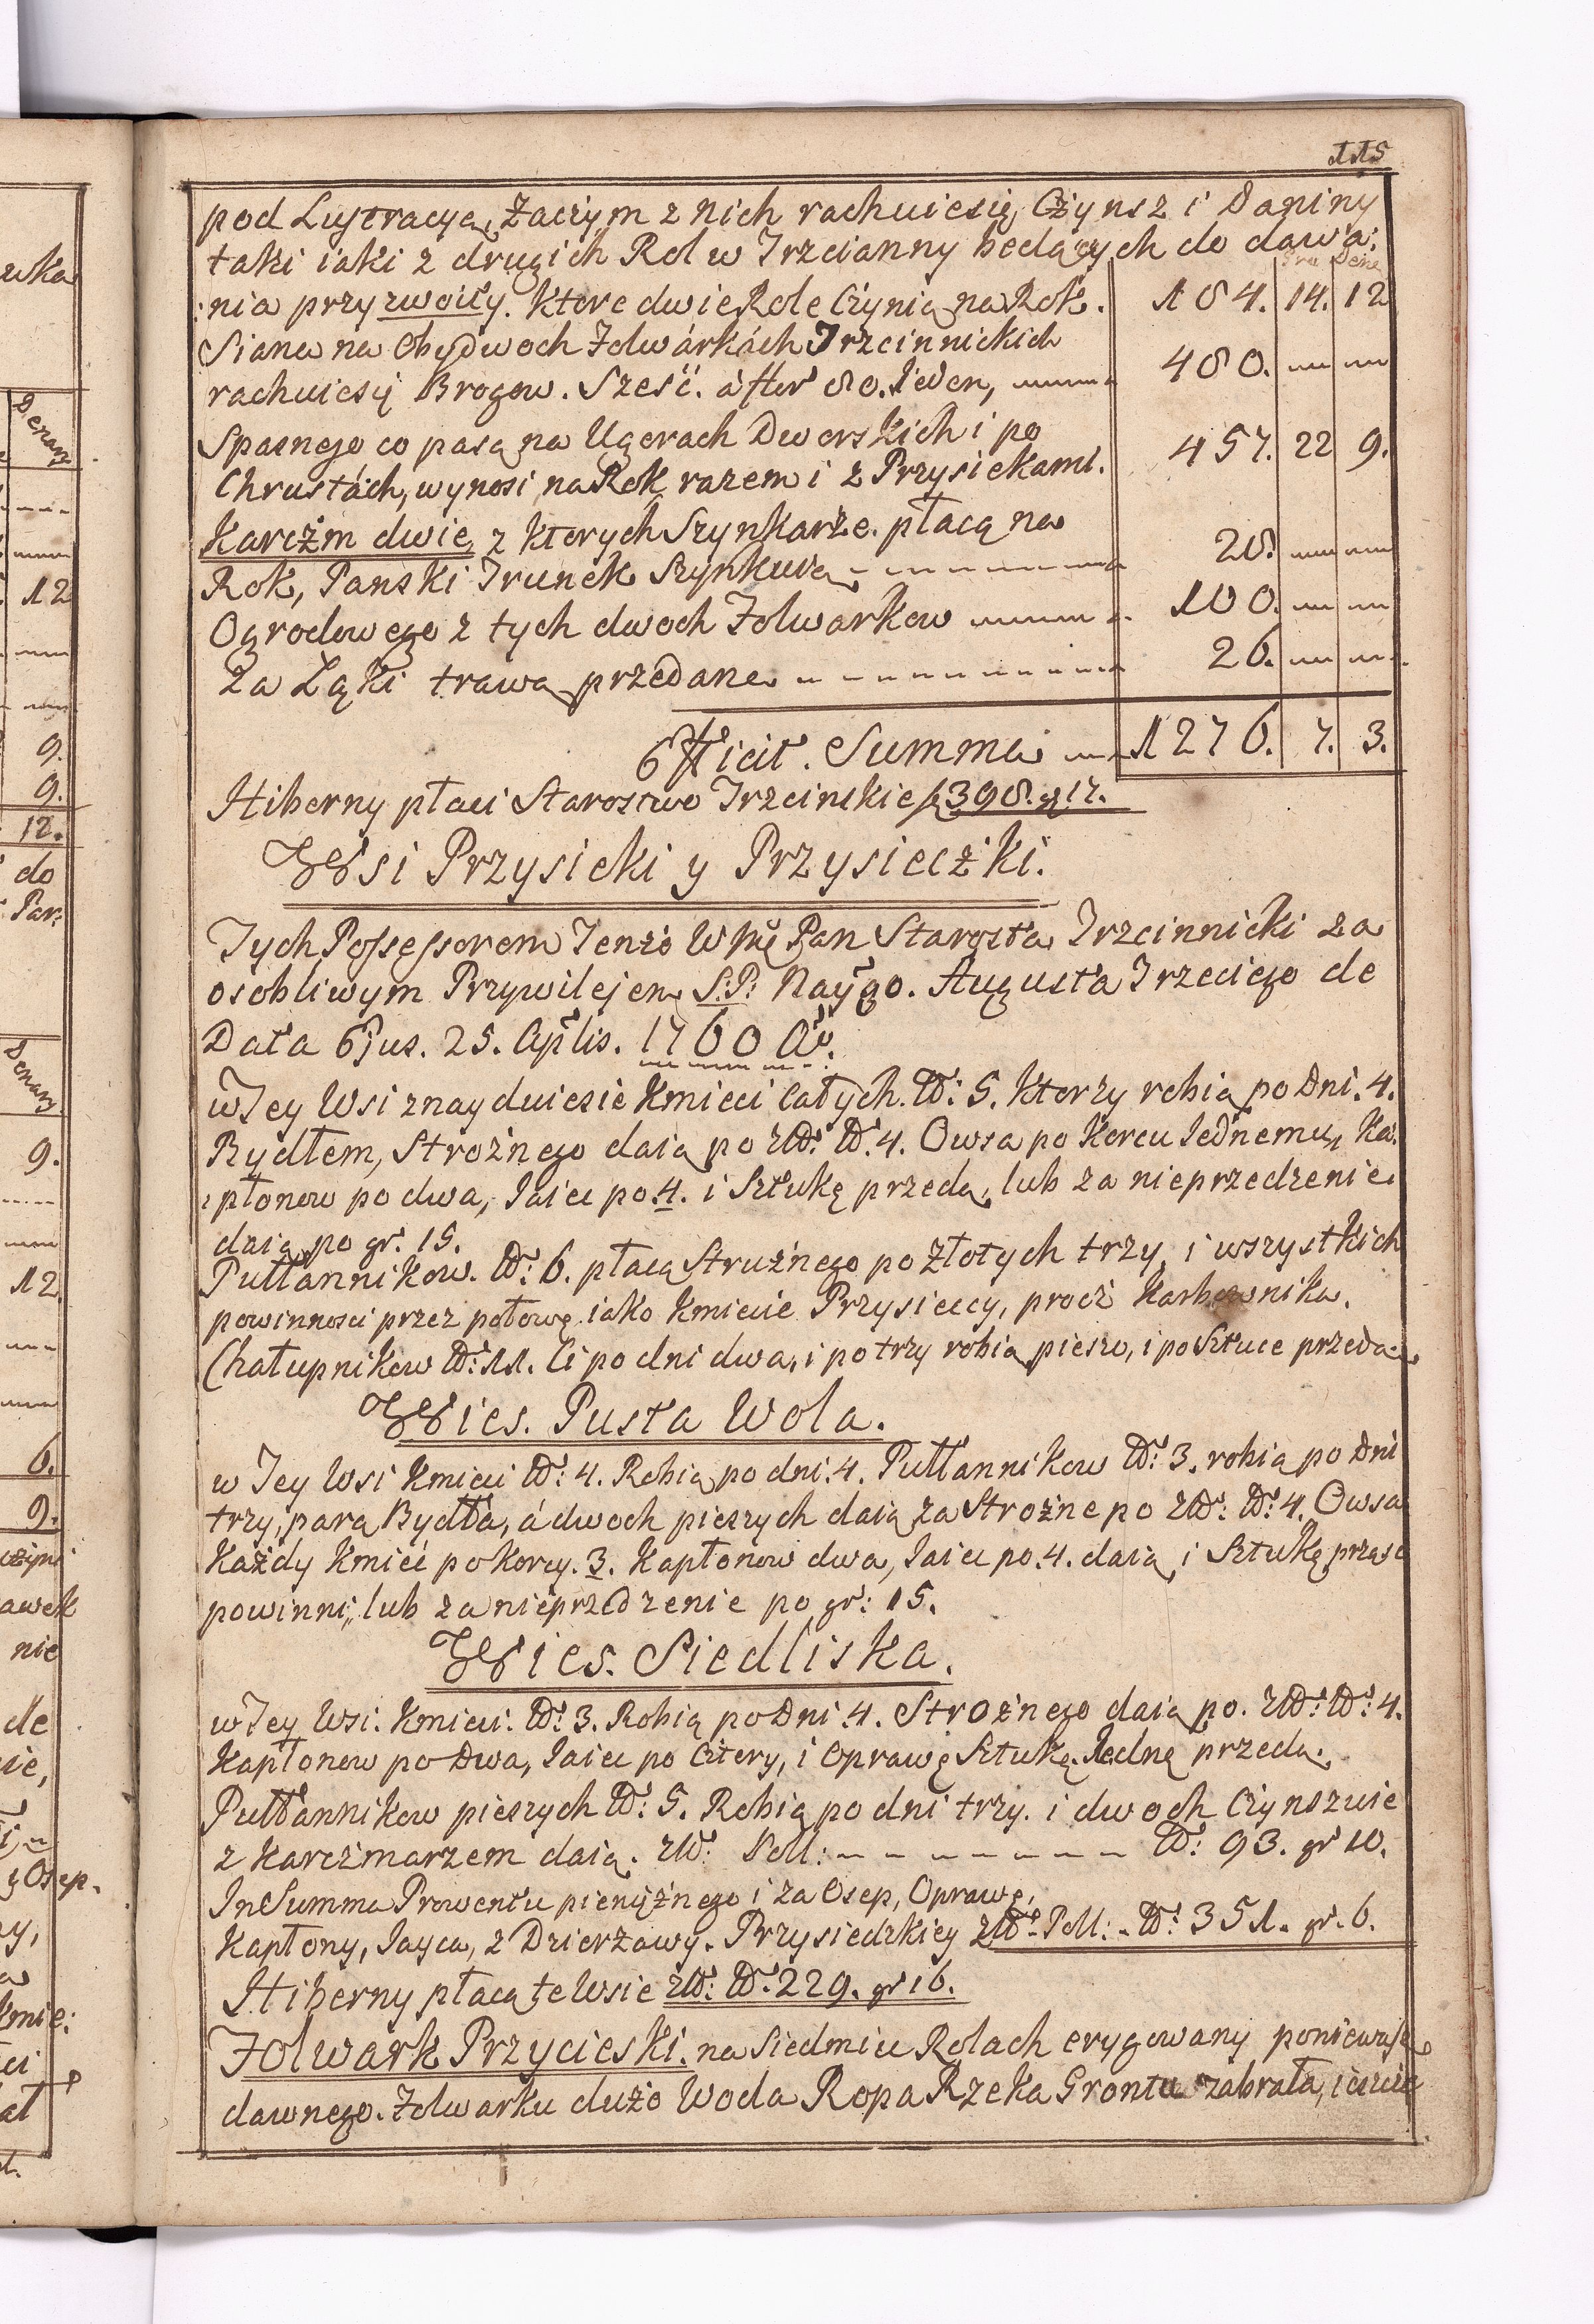 115
pod Lustracyą, Zaczym z nich rachuiesię Czynsz i Daniny
taki iaki z drugich Rol w Trzcianny będących do dawa:
:nia przyzwoity. Ktore dwie Role Czynią na Rok. 184. 14. 12
Siana na Obydwoch Folwárkách Trzcinnickich
rachuiesię Brogow. Sześć. à flor 80. Ieden, 480.
Spasnego co pasą na Ugorach Dworskich i po
Chrustách, wynosi na Rok razem i z Przysiekami. 457. 22 9.
Karczm dwie, z ktorych Szynkarze. płacą na
Rok, Panski Trunek Szynkuią 28.
Ogrodowego z tych dwoch Folwarkow 100.
Za Łąki trawą przedane 26.
Efficit. Summa 1276. 7. 3.
Hiberny płaci Starostwo Trzcinskie f 398. gr 17.
Wsi Przysieki y Przysieczki.
Tych Possessorem Tenżo WJMć Pan Starosta Trzcinnicki za
osobliwym Przywilejem S:P: Nayo. Augusta Trzeciego de
Data Ejus. 25. Aplis. 1760 Ao.
w Tey Wsi znayduiesie Kmieci całych. No: 5. Ktorzy robią po Dni. 4.
Bydłem, Strożnego daią po Zło: No: 4. Owsa po Korcu Iednemu, Ka:
:płonow po dwa, Iaiec po. 4. i Sztukę przedą, lub za nieprzedzenie.
daią po gr. 15.
Pułłannikow. No: 6. płacą Strużnego po złotych trzy, i wszystkich
powinnosci przez połowę iako Kmiecie Przysieccy, procż Karbownika.
Chałupnikow No: 11. Ci po dni dwa, i po trzy robią pieszo, i po Sztuce przedą.
Wies. Pusta Wola.
w Tey Wsi Kmieci No: 4. Robią po dni. 4. Pułłannikow No: 3. robią po Dni
trzy, parą Bydła, á dwoch pieszych daią za Strożne po Zło: No: 4. Owsa
Każdy Kmieć po Korcy. 3. Kapłonow dwa, Iaiec po. 4. daią i Sztukę prząść
powinni, lub za nieprzedzenie po gr: 15.
Wies. Siedliska.
w Tey Wsi. Kmieci. No: 3. Robią po Dni. 4. Strożnego daią po. Zło: No: 4.
Kapłonow po Dwa, Iaiec po Cztery, i Oprawę Sztukę Iednę przedą.
Pułłannikow pieszych No: 5. Robią po dni trzy. i dwoch Czynszuie
z Karczmarzem daią. Zło: Poll: No: 93. gr 10.
In Summa Prowentu pieniężnego i za Osep, Oprawę,
Kapłony, Jayca, z Dzierżawy. Przysiedzkiey Zło: Poll: No: 351. gr. 6.
Hiberny płacą te Wsie Zło: No: 229. gr 16.
Folwark Przycieski. na Siedmiu Rolach erygowany poniewasz
dawnego. Folwarku dużo Woda Ropa Rzeka Grontu zabrała,